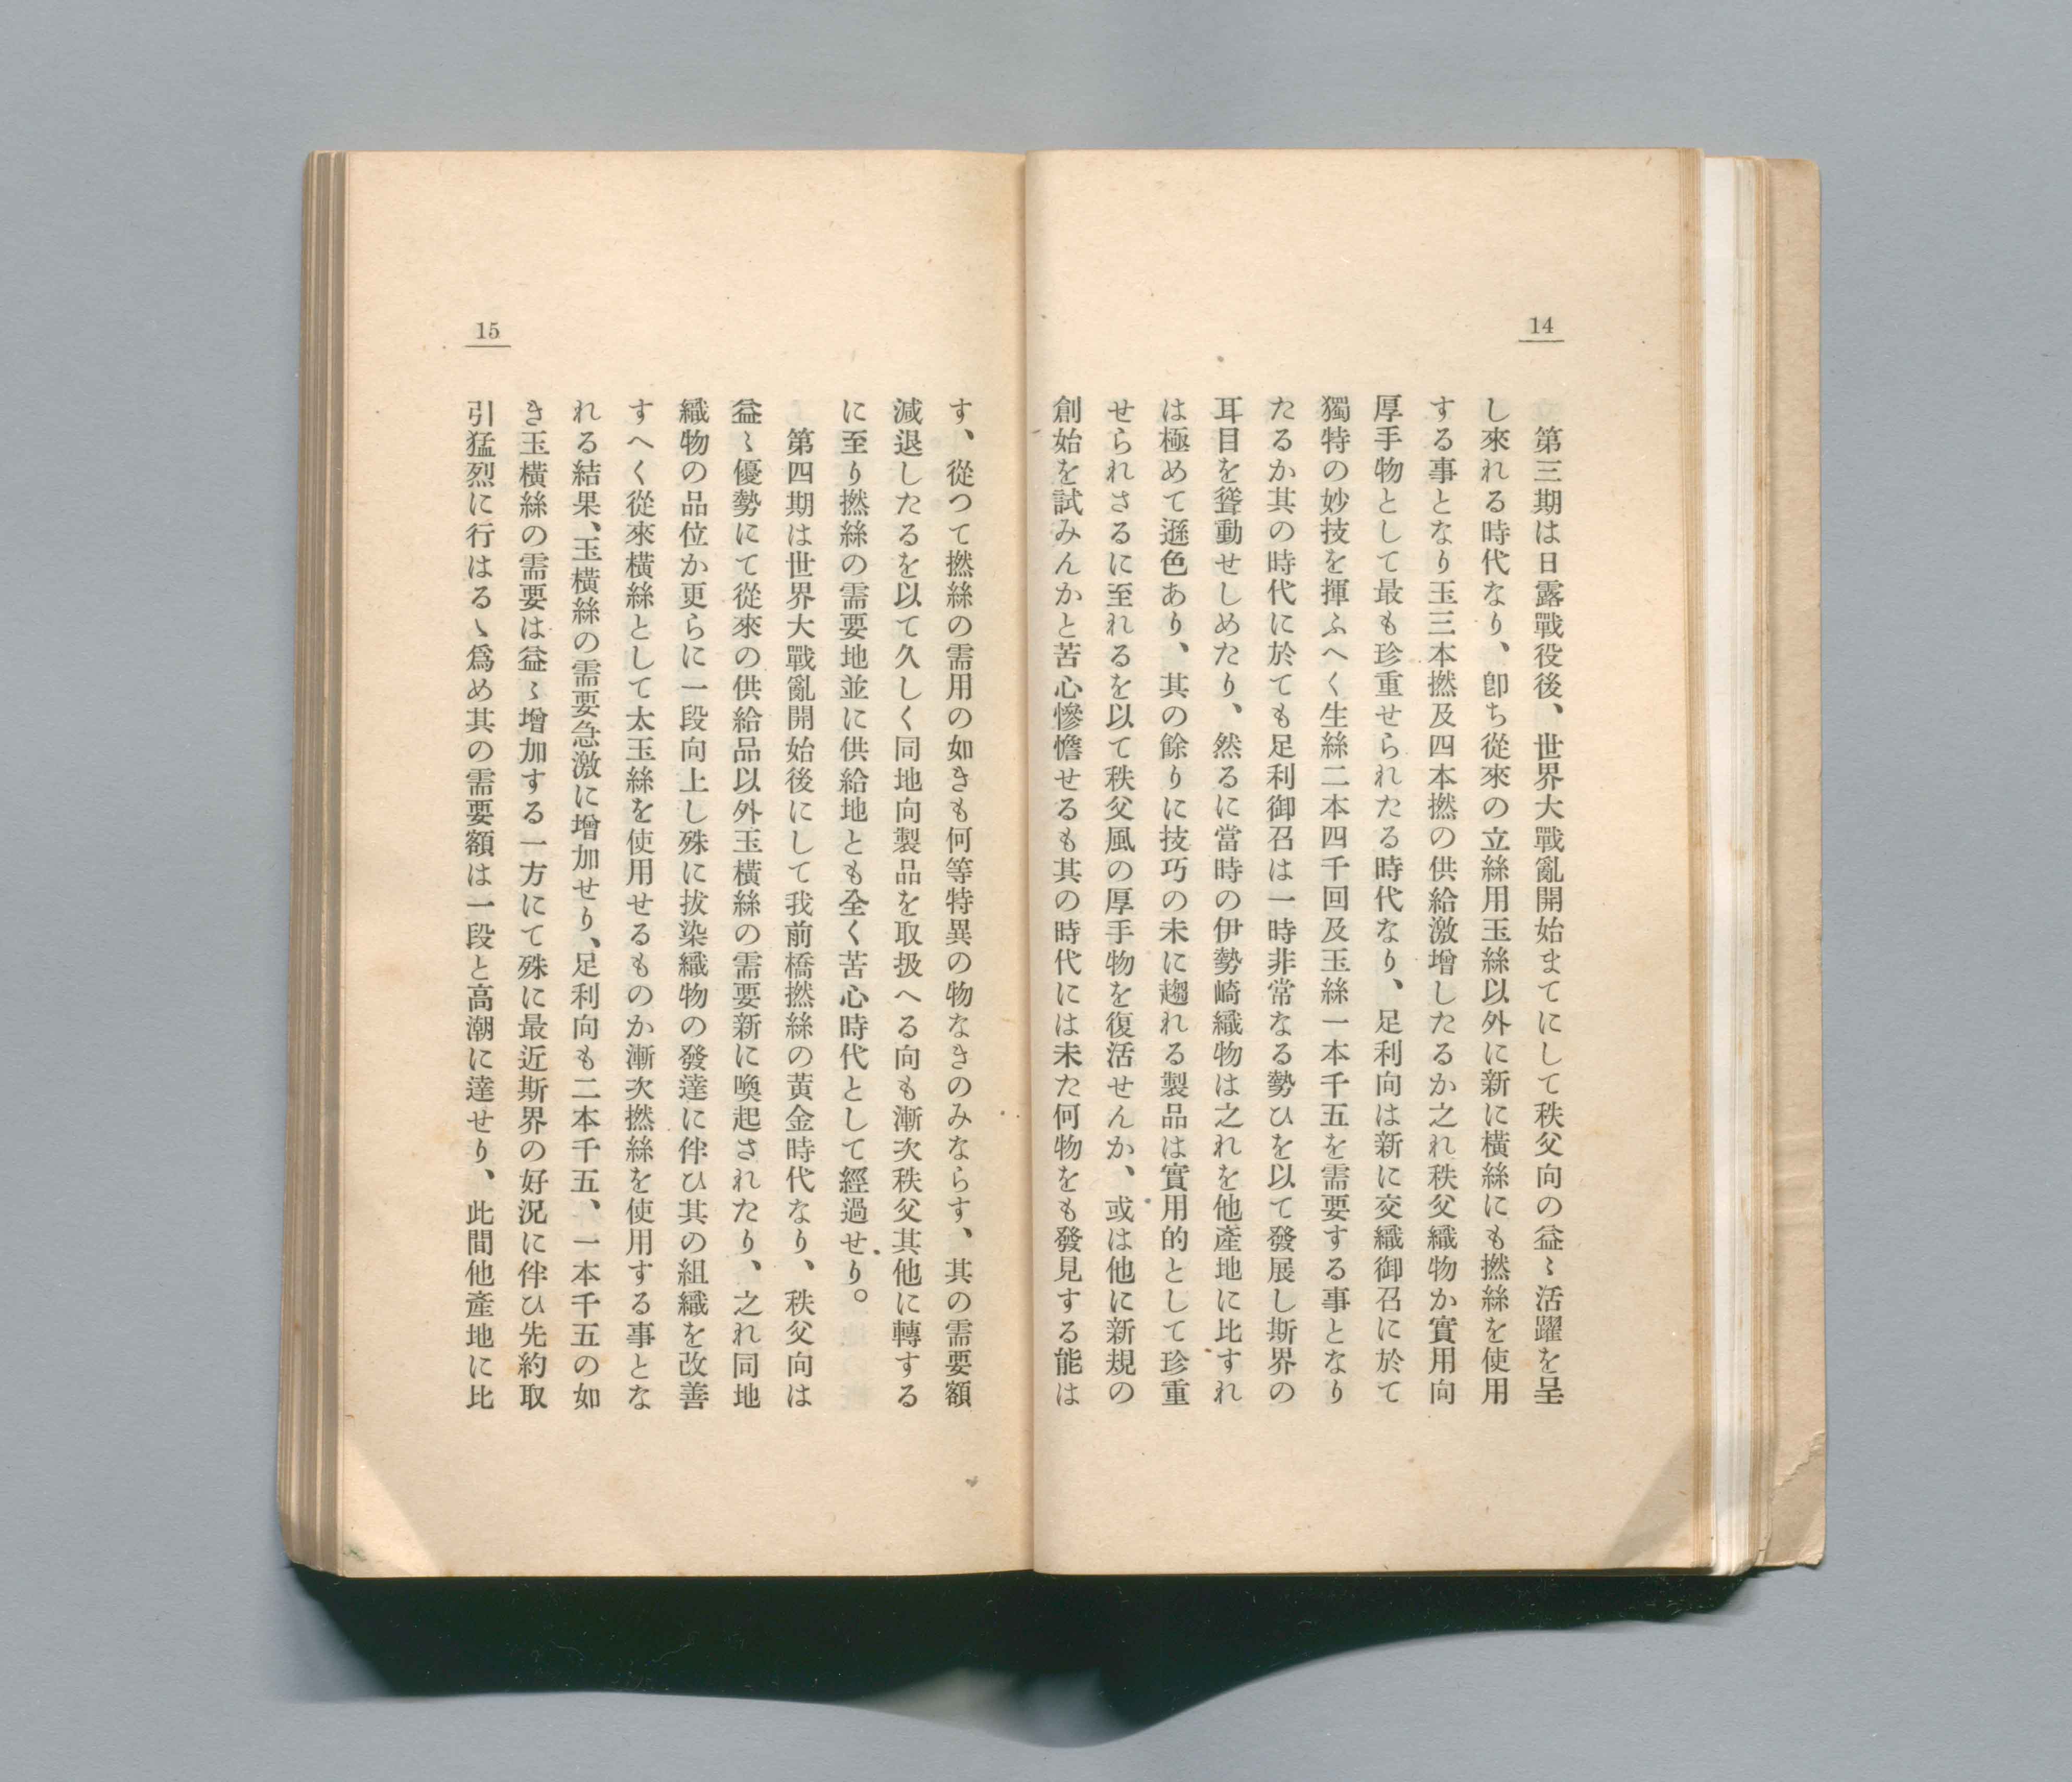 14
第三期は日露戰役後、世界大戰亂開始まてにして秩父向の益〻活躍を呈
し來れる時代なり、卽ち從來の立絲用玉絲以外に新に橫絲にも撚絲を使用
する事となり玉三本撚及四本撚の供給激增したるか之れ秩父織物か實用向
厚手物として最も珍重せられたる時代なり、足利向は新に交織御召に於て
獨特の妙技を揮ふへく生絲二本四千回及玉絲一本千五を需要する事となり
たるか其の時代に於ても足利御召は一時非常なる勢ひを以て發展し斯界の
耳目を聳動せしめたり、然るに當時の伊勢崎織物は之れを他產地に比すれ
は極めて遜色あり、其の餘りに技巧の未に趨れる製品は實用的として珍重
せられさるに至れるを以て秩父風の厚手物を復活せんか、或は他に新規の
創始を試みんかと苦心慘憺せるも其の時代には未た何物をも發見する能は
15
す、從つて撚絲の需用の如きも何等特異の物なきのみならす、其の需要額
減退したるを以て久しく同地向製品を取扱へる向も漸次秩父其他に轉する
に至り撚絲の需要地並に供給地とも全く苦心時代として經過せり。
第四期は世界大戰亂開始後にして我前橋撚絲の黃金時代なり、秩父向は
益〻優勢にて從來の供給品以外玉橫絲の需要新に喚起されたり、之れ同地
織物の品位か更らに一段向上し殊に拔染織物の發達に伴ひ其の組織を改善
すへく從來橫絲として太玉絲を使用せるものか漸次撚絲を使用する事とな
れる結果、玉橫絲の需要急激に增加せり、足利向も二本千五、一本千五の如
き玉橫絲の需要は益〻增加する一方にて殊に最近斯界の好況に伴ひ先約取
引猛烈に行はるゝ爲め其の需要額は一段と高潮に達せり、此間他產地に比